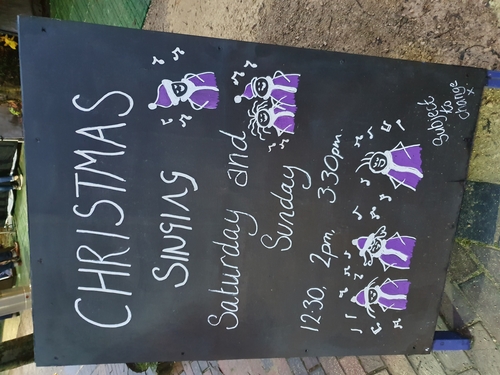 CHRISTMAS
SINGING
Saturday and
Sunday
12:30, 2pm, 3:30pm.
subject
to
change
x